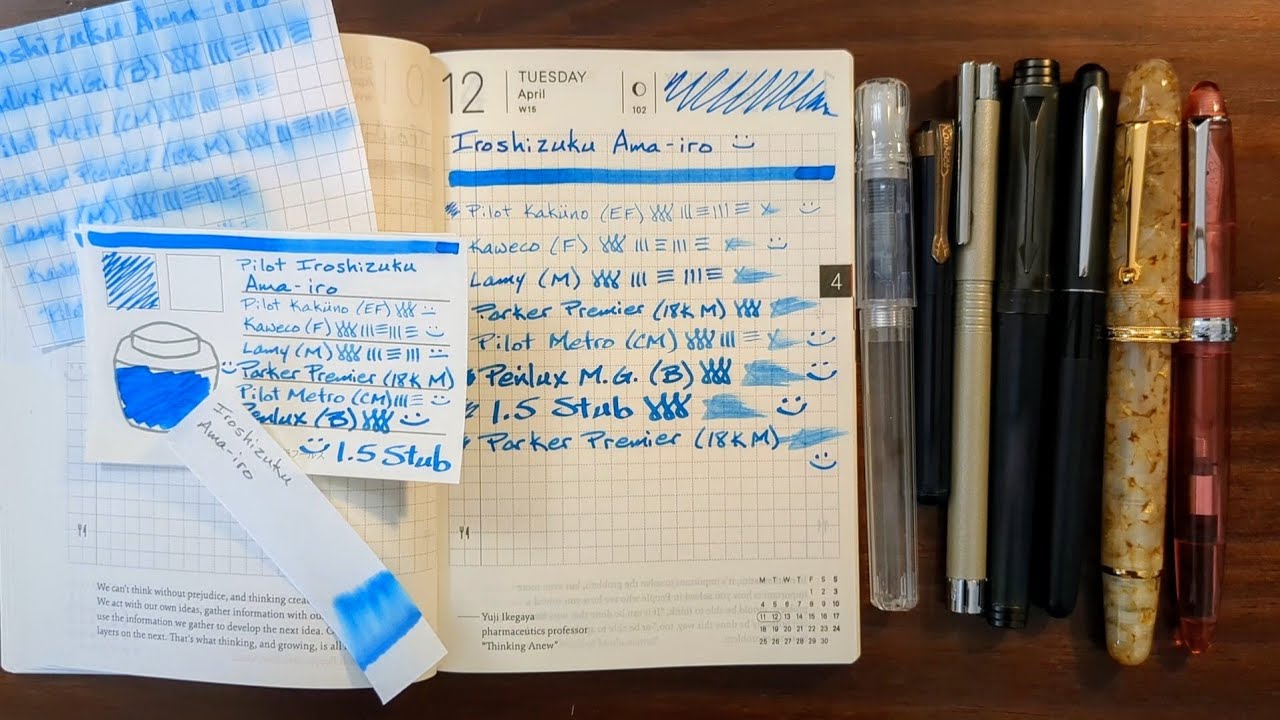 Iroshizuku Ama-iro
Penlux M.G. (B)
Pilot Metro (CM)
Parker Premier (18K M)
Lamy (M)
Kaweco
Pilot Iroshizuku
Ama-iro
Pilot Kaküno (EF)
Kaweco (F)
Lamy (M)
Parker Premier (18K M)
Pilot Metro (CM)
Penlux (B)
1.5 Stub
Iroshizuku
Ama-iro
We can't think without prejudice, and thinking
We act with our own ideas, gather information with
use the information we gather to develop the next idea.
layers on the next. That's what thinking, and growing, is all
12 TUESDAY
April
W15
102
Iroshizuku Ama-iro
Pilot Kaküno (EF)
Kaweco (F)
Lamy (M)
4
Parker Premier (18K M)
Pilot Metro (CM)
Penlux M.G. (B)
1.5 Stub
Parker Premier (18K M)
M T W T F S S
1 2 3
4 5 6 7 8 9 10
11 12 13 14 15 16 17
18 19 20 21 22 23 24
25 26 27 28 29 30
Yuji Ikegaya
pharmaceutics professor
"Thinking Anew"